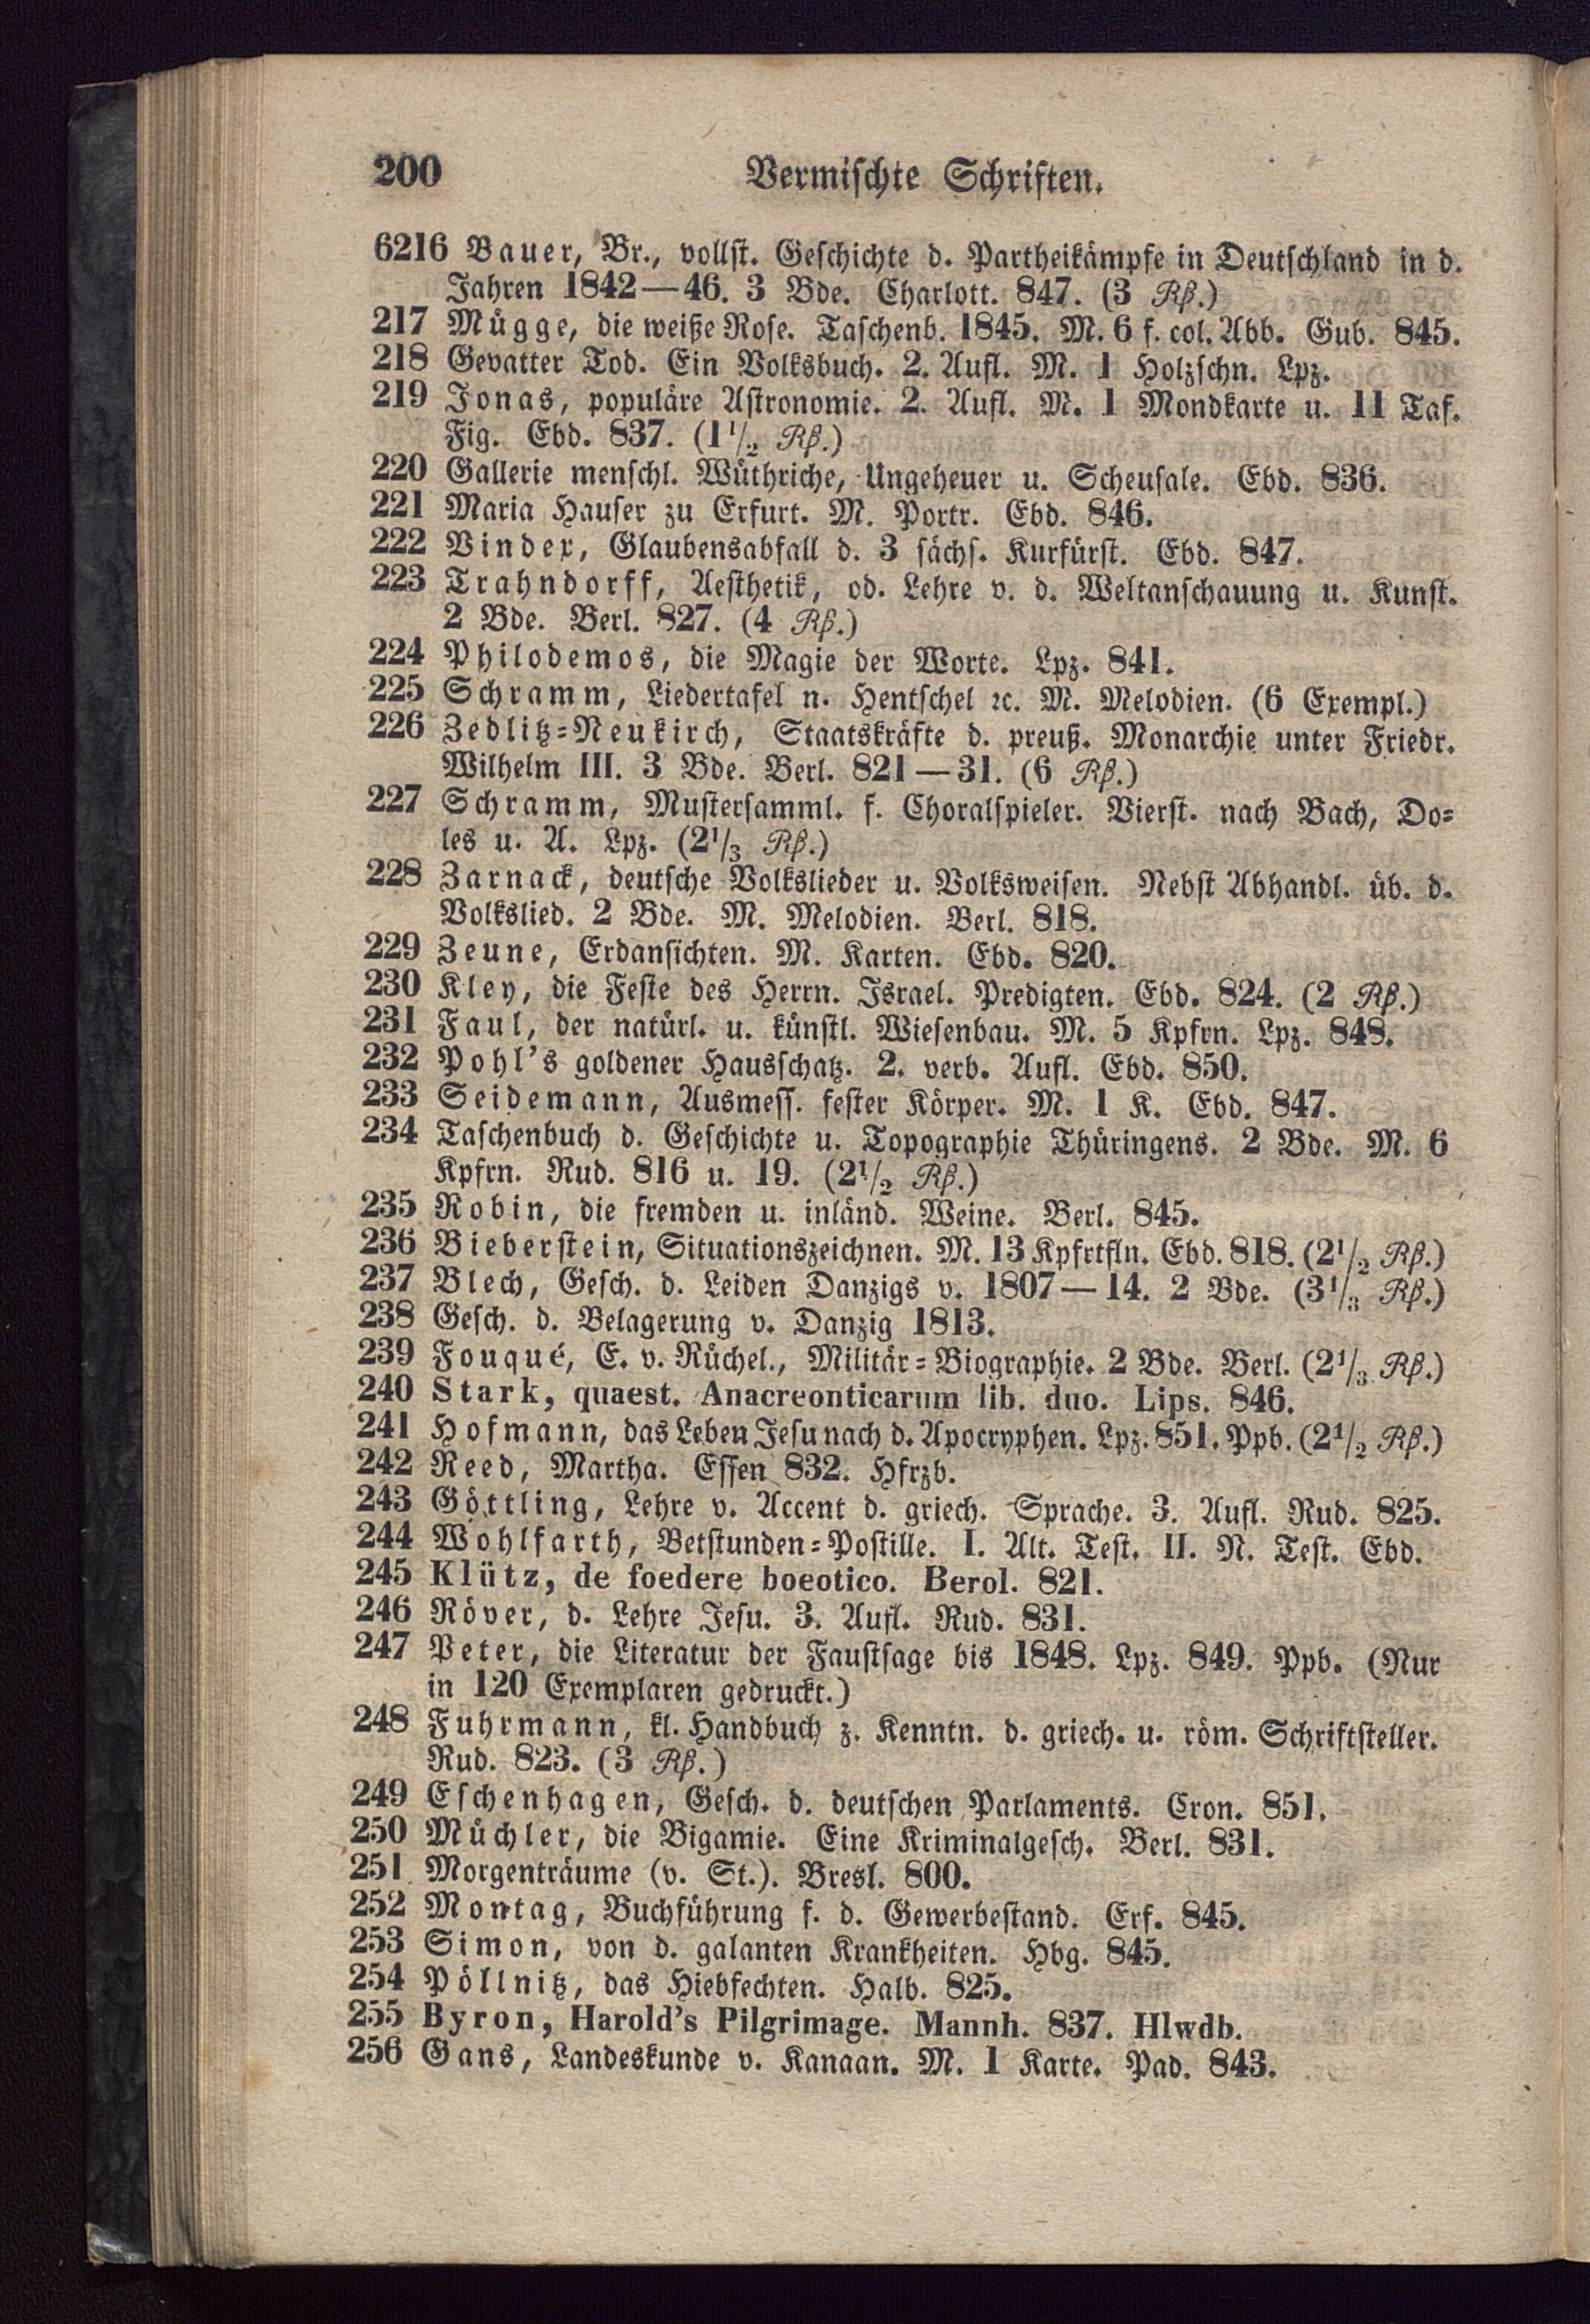 200 Vermischte Schriften.
6216 Bauer, Br., vollst. Geschichte d. Partheikämpfe in Deutschland in d.
Jahren 1842—46. 3 Bde. Charlott. 847. (3 Rß.)
217 Mügge, die weiße Rose. Taschenb. 1845. M. 6 f. col. Abb. Gub. 845.
218 Gevatter Tod. Ein Volksbuch. 2. Aufl. M. 1 Holzschn. Lpz.
219 Jonas, populäre Astronomie. 2. Aufl. M. 1 Mondkarte u. 11 Taf.
Fig. Ebd. 837. (1 1/2 Rß.)
220 Gallerie menschl. Wüthriche, Ungeheuer u. Scheusale. Ebd. 836.
221 Maria Hauser zu Erfurt. M. Portr. Ebd. 846.
222 Binder, Glaubensabfall d. 3 sächs. Kurfürst. Ebd. 847.
223 Trahndorff, Aesthetik, od. Lehre v. d. Weltanschauung u. Kunst.
2 Bde. Berl. 827. (4 Rß.)
224 Philodemos, die Magie der Worte. Lpz. 841.
225 Schramm, Liedertafel n. Hentschel ꝛc. M. Melodien. (6 Exempl.)
226 Zedlitz=Neukirch, Staatskräfte d. preuß. Monarchie unter Friedr.
Wilhelm III. 3 Bde. Berl. 821—31. (6 Rß.)
227 Schramm, Mustersamml. f. Choralspieler. Vierst. nach Bach, Do=
les u. A. Lpz. (2 1/3 Rß.)
228 Zarnack, deutsche Volkslieder u. Volksweisen. Nebst Abhandl. üb. d.
Volkslied. 2 Bde. M. Melodien. Berl. 818.
229 Zeune, Erdansichten. M. Karten. Ebd. 820.
230 Kley, die Feste des Herrn. Israel. Predigten. Ebd. 824. (2 Rß.)
231 Faul, der natürl. u. künstl. Wiesenbau. M. 5 Kpfrn. Lpz. 848.
232 Pohl's goldener Hausschatz. 2. verb. Aufl. Ebd. 850.
233 Seidemann, Ausmess. fester Körper. M. 1 K. Ebd. 847.
234 Taschenbuch d. Geschichte u. Topographie Thüringens. 2 Bde. M. 6
Kpfrn. Rud. 816 u. 19. (2 1/2 Rß.)
235 Robin, die fremden u. inländ. Weine. Berl. 845.
236 Bieberstein, Situationszeichnen. M. 13 Kpfrtfln. Ebd. 818. (2 1/2 Rß.)
237 Blech, Gesch. d. Leiden Danzigs v. 1807—14. 2 Bde. (3 1/3 Rß.)
238 Gesch. d. Belagerung v. Danzig 1813.
239 Fouqué, E. v. Rüchel., Militär=Biographie. 2 Bde. Berl. (2 1/3 Rß.)
240 Stark, quaest. Anacreonticarum lib. duo. Lips. 846.
241 Hofmann, das Leben Jesu nach d. Apocryphen. Lpz. 851. Ppb. (2 1/2 Rß.)
242 Reed, Martha. Essen 832. Hfrzb.
243 Göttling, Lehre v. Accent d. griech. Sprache. 3. Aufl. Rud. 825.
244 Wohlfarth, Betstunden=Postille. I. Alt. Test. II. N. Test. Ebd.
245 Klütz, de foedere boeotico. Berol. 821.
246 Röver, d. Lehre Jesu. 3. Aufl. Rud. 831.
247 Peter, die Literatur der Faustsage bis 1848. Lpz. 849. Ppb. (Nur
in 120 Exemplaren gedruckt.)
248 Fuhrmann, kl. Handbuch z. Kenntn. d. griech. u. röm. Schriftsteller.
Rud. 823. (3 Rß.)
249 Eschenhagen, Gesch. d. deutschen Parlaments. Cron. 851.
250 Müchler, die Bigamie. Eine Kriminalgesch. Berl. 831.
251 Morgenträume (v. St.). Bresl. 800.
252 Montag, Buchführung f. d. Gewerbestand. Erf. 845.
253 Simon, von d. galanten Krankheiten. Hbg. 845.
254 Pöllnitz, das Hiebfechten. Halb. 825.
255 Byron, Harold's Pilgrimage. Mannh. 837. Hlwdb.
256 Gans, Landeskunde v. Kanaan. M. 1 Karte. Pad. 843.